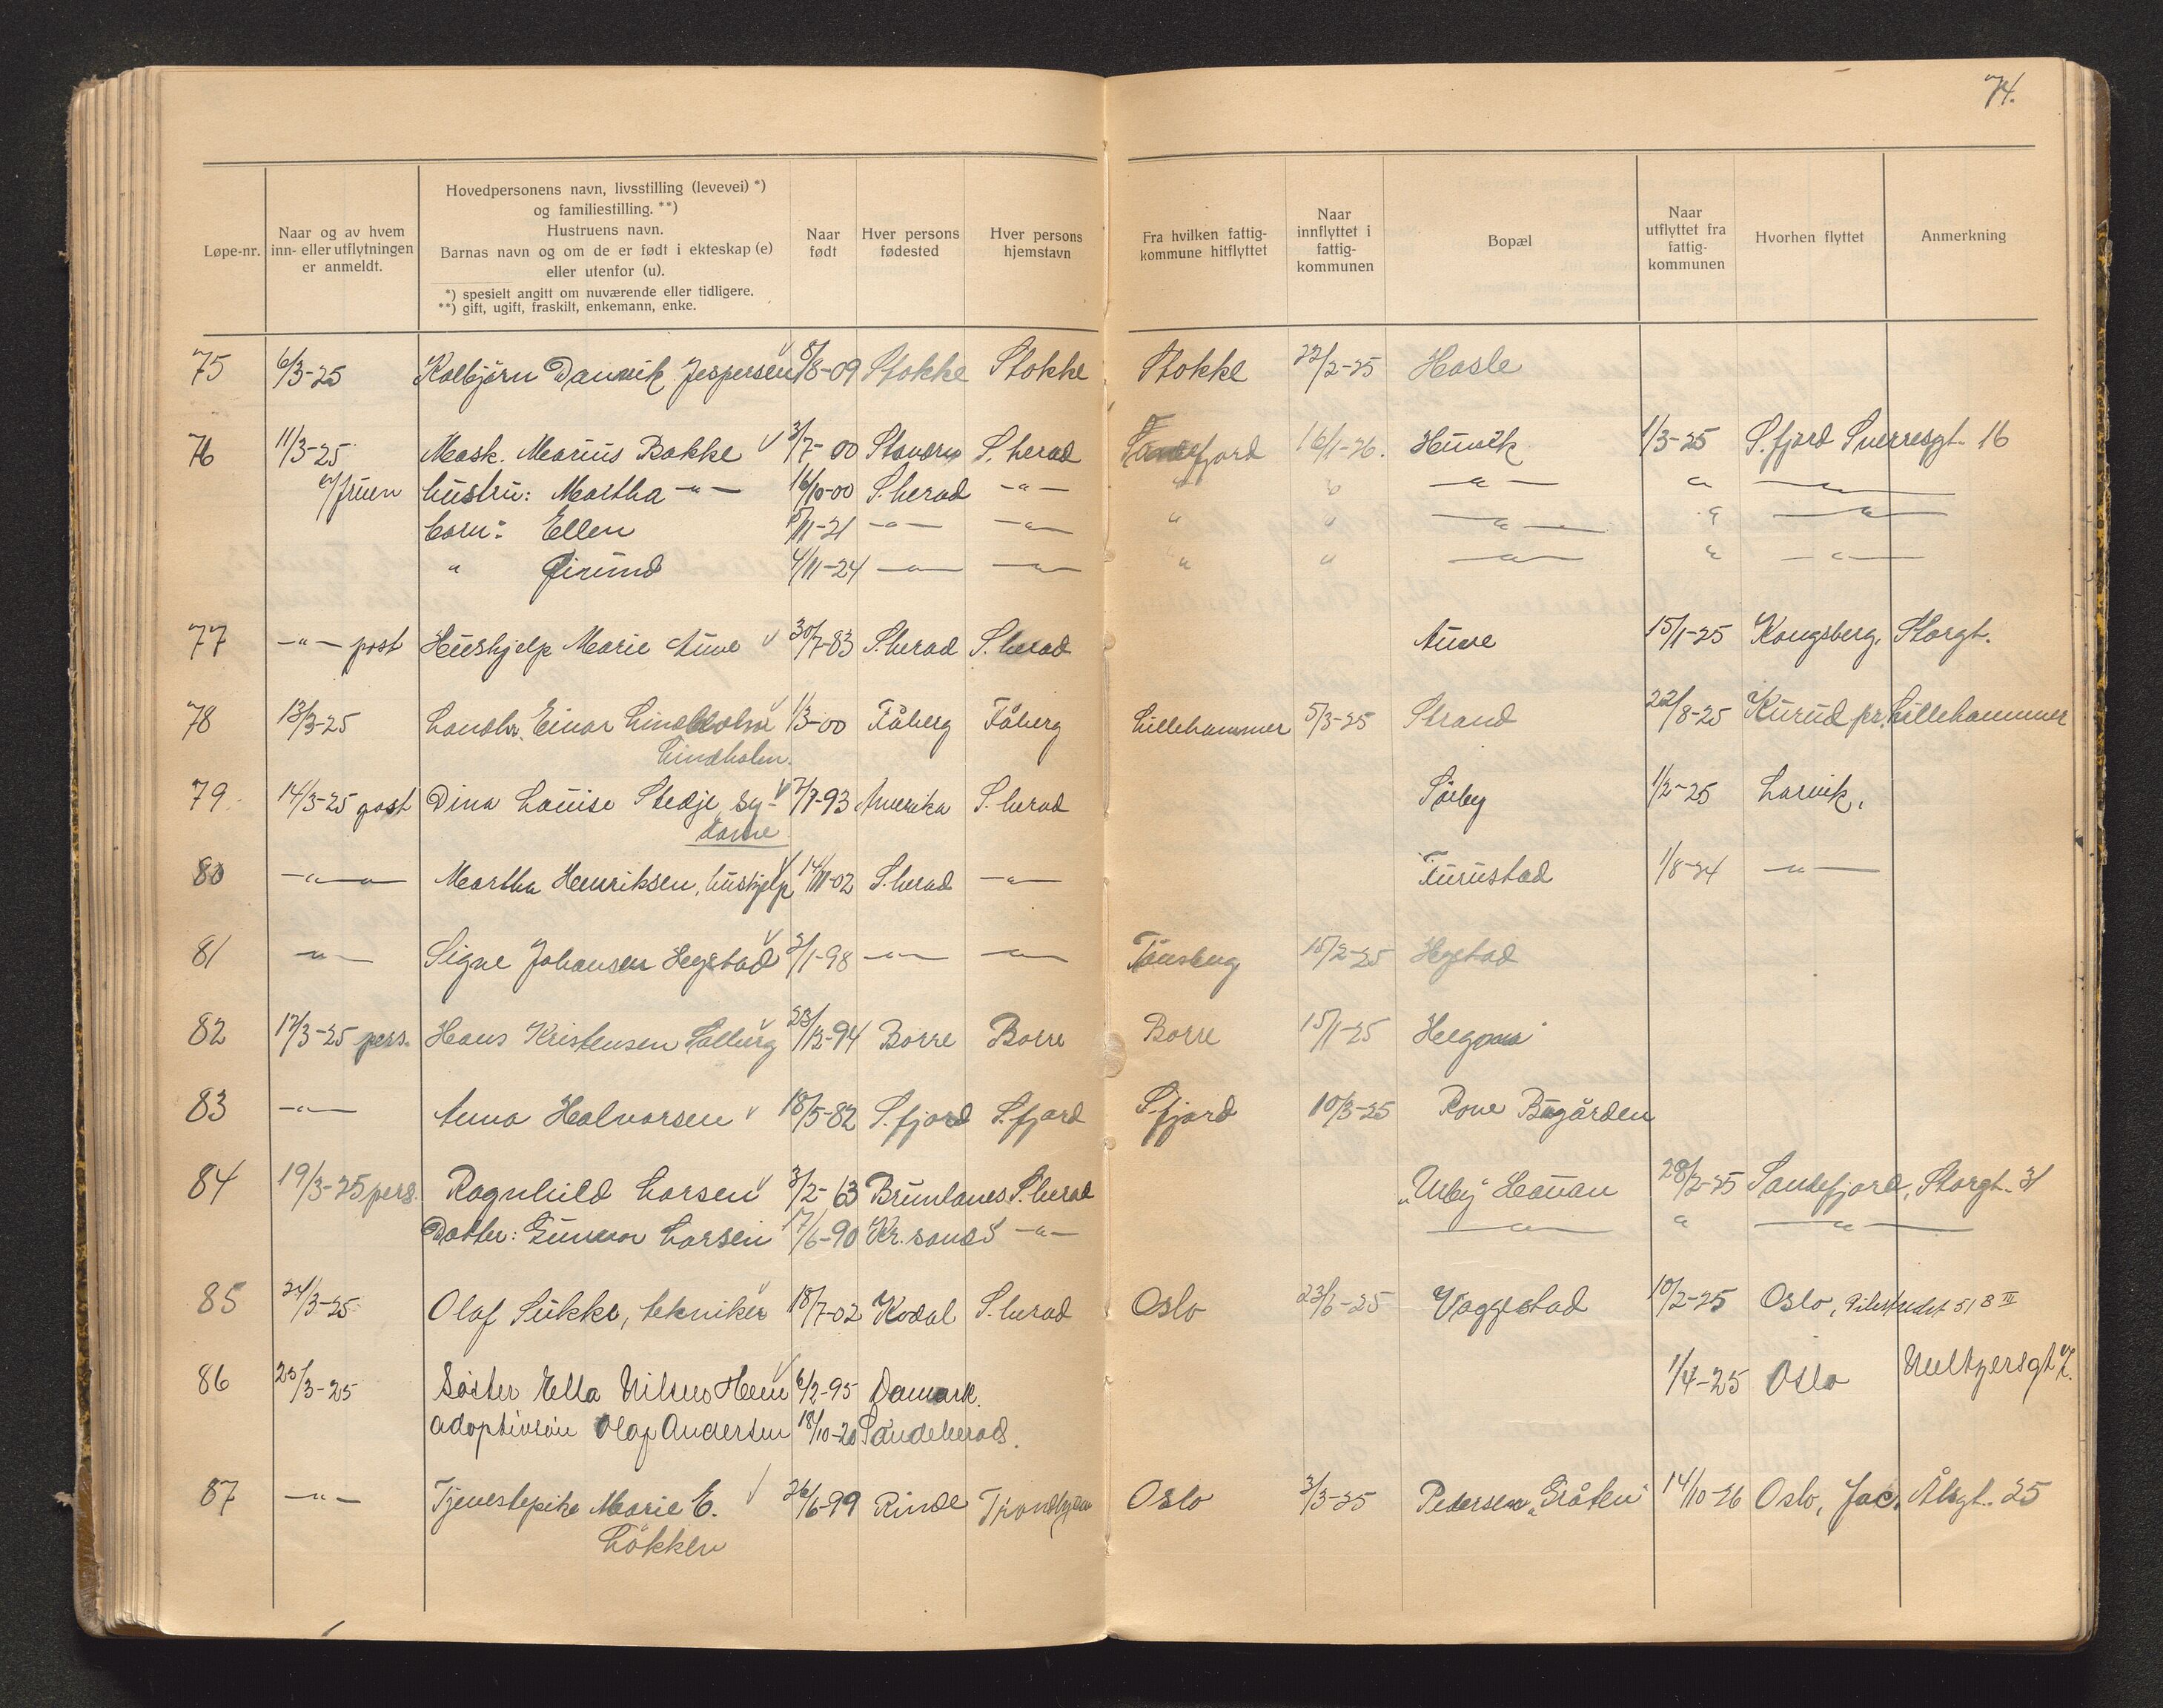 74.
Løpe-nr.
Naar og av hvem
inn- eller utflytningen
er anmeldt.
Hovedpersonens navn, livsstilling (levevei) *)
og familiestilling. **)
Hustruens navn.
Barnas navn og om de er født i ekteskap (e)
eller utenfor (u).
*) spesielt angitt om nuværende eller tidligere.
**) gift, ugift, fraskilt, enkemann, enke.
Naar
født
Hver persons
fødested
Hver persons
hjemstavn
Fra hvilken fattig-
kommune hitflyttet
Naar
innflyttet i
fattig-
kommunen
Bopæl
Naar
utflyttet fra
fattig-
kommunen
Hvorhen flyttet
Anmerkning
75 6/3-25 Kolbjörn Danvik Jespersen 8/8-09 Stokke Stokke Stokke 22/2-25 Hasle
76 11/3-25 Mask. Marius Bakke 3/7-00 S. herad fjord 16/1-26. Hünvik 1/3-25 S.fjord Sverresgt. 16
v/fruen hüstrü: Martha -"- 16/10-00 S.herad -"- " " -"- " -"-
barn: Ellen 5/11-21 -"- -"- " " -"- " -"-
" 4/11-24 -"- -"- " " -"- " -"-
77 -"- post Hüshjelp Marie Aüve 30/7-83 S.herad S.herad Aüve 15/1-25 Kongsberg, Storgt.
78 13/3-25 Landhr. Einar Lindholm 1/3-00 Fåberg Fåberg Lillehammer 5/3-25 Strand 22/8-25 Kürüd pr. Lillehammer
Lindholm.
79 14/3-25 post Dina Loüise Stedje, sy- 7/7-93 Amerika S. herad Sörby 1/2-25 Larvik.
dame
80 -"- Martha Henriksen, hüshjelp 14/11-02 S.herad -"- Fürüstad 1/8-24 -"-
81 -"- Signe Johansen Hegstad 3/1-98 -"- -"- Tönsberg 15/2-25 Hegstad
82 17/3-25 pers. Hans Kristensen Solberg 23/12-94 Borre Borre Borre 15/1-25
83 -"- Anna Halvorsen 18/5-82 S.fjord S.fjord S.fjord 10/3-25 Rove Bügården
84 19/3-25 pers. Ragnhild Larsen 3/2-63 Brünlanes S.herad "Urby" Haüan 28/2-25 Sandefjord, Storgt. 31
Datter: Günvor Larsen 17/6-90 Kr.sand S -"- -"- " -"-
85 24/3-25 Olaf Sükke, tekniker 18/7-02 Kodal S.herad Oslo 23/6-25 Vaggestad 10/2-25 Oslo, Pilestredet 51 B III
86 25/3-25 Söster Ella Nilsens Hem 6/2-95 Danmark. 1/4-25 Oslo
adoptivsön Olaf Andersen 18/10-20 Sandeherad.
87 -"- Tjenestepike Marie E. 26/6-99 Rinde Trondhjem Oslo 3/3-25 Pedersen "Gråten" 14/10-26 Oslo, Jac. Ålsgt. 25
Lökken